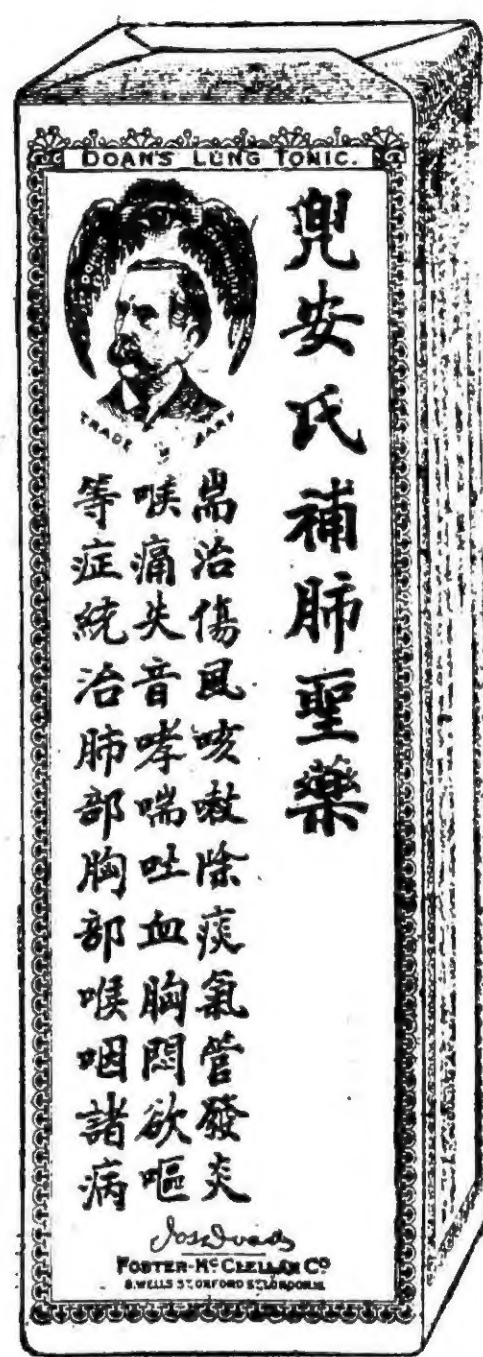 DOAN'S LUNG TONIC.
兜安氏補肺聖藥
TRADE MARK
耑治傷風咳嗽除痰氣管發炎
喉痛失音哮喘吐血胸悶欲嘔
等症統治肺部胸部喉咽諸病
FOSTER-McCLELLAN Co
8, WELLS ST. OXFORD ST. LONDON.